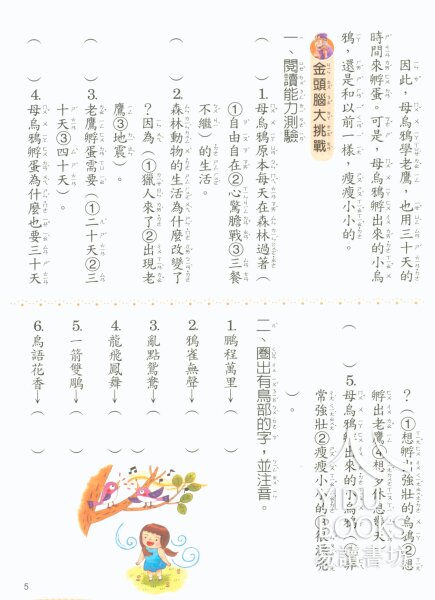 因此，母烏鴉學老鷹，也用三十天的
時間來孵蛋。可是，母烏鴉孵出來的小烏
鴉，還是和以前一樣，瘦瘦小小的。
金頭腦大挑戰
一、閱讀能力測驗
（　）1.母烏鴉原本每天在森林過著（
①自由自在②心驚膽戰③三餐
不繼）的生活。
（　）2.森林動物的生活為什麼改變了
？因為（①獵人來了②出現老
鷹③地震）。
（　）3.老鷹孵蛋需要（①二十天②三
十天③四十天）。
（　）4.母烏鴉孵蛋為什麼也要三十天
？（①想孵出強壯的烏鴉②想
孵出老鷹 想多休息幾天
）。
（　）5.母烏鴉孵出來的小烏鴉 ①非
常強壯②瘦瘦小小的 很漂亮
）。
二、圈出有鳥部的字，並注音。
1.鵬程萬里→（　）
2.鴉雀無聲→（　）
3.亂點鴛鴦→（　）
4.龍飛鳳舞→（　）
5.一箭雙鵰→（　）
6.鳥語花香→（　）
5